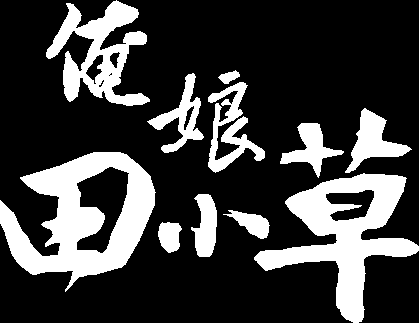 俺娘
田小草